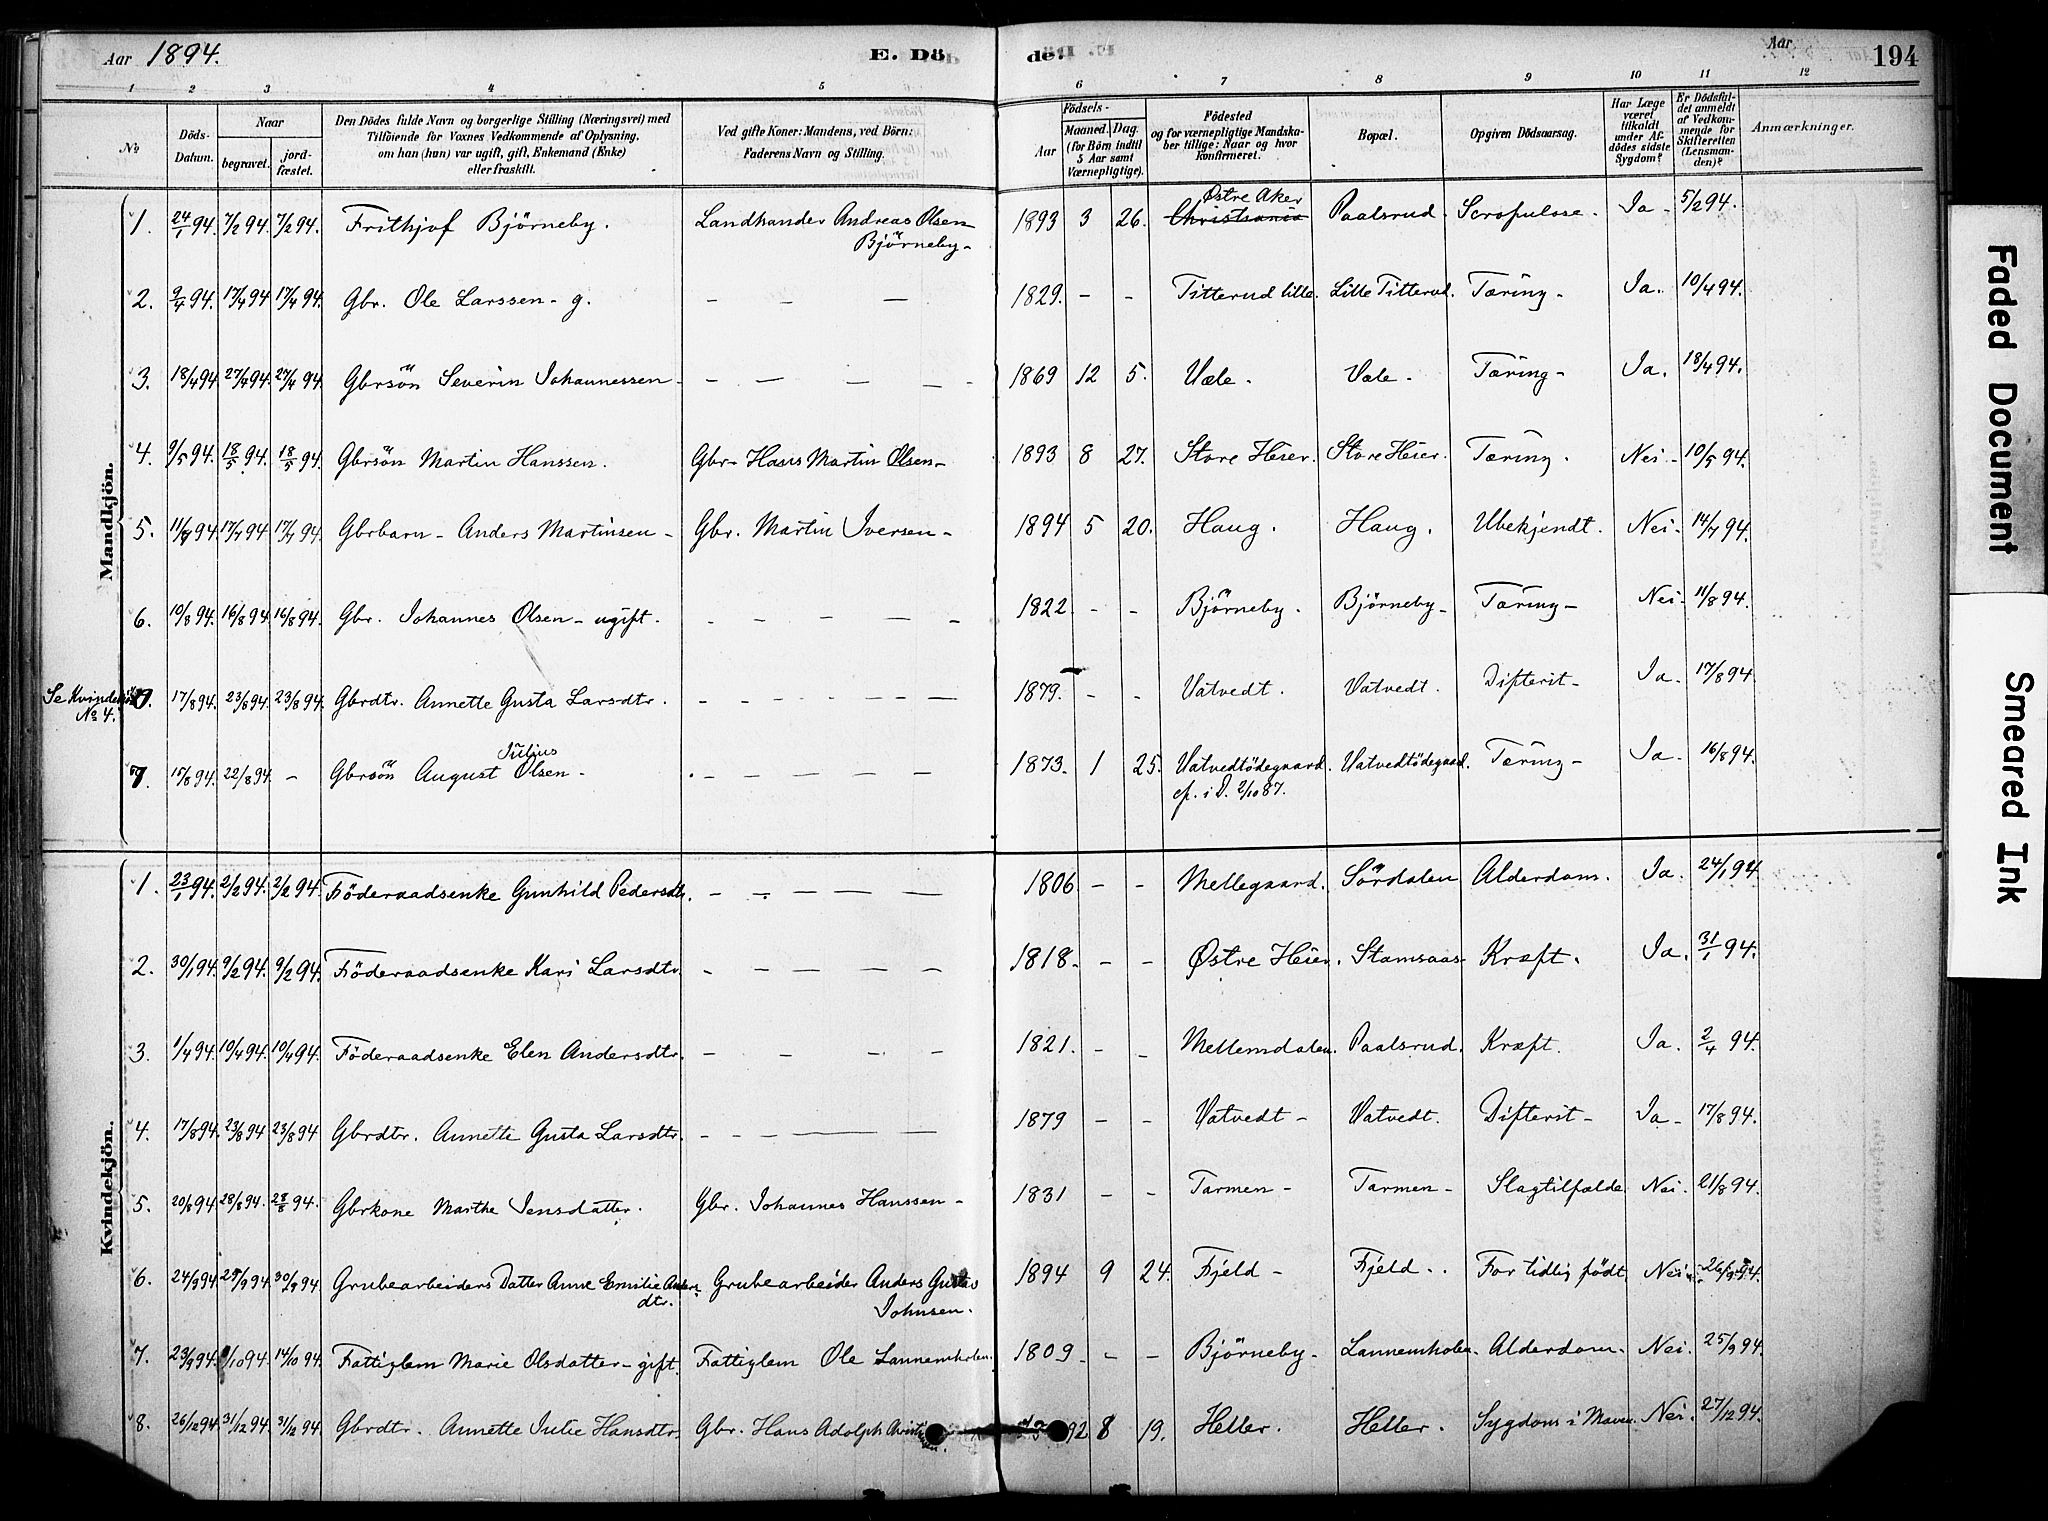 Aar 1894. E. Dö de. Aar 194
1 2 3 4 5 6 7 8 9 10 11 12
No Döds-Datum. Naar begravet. jordfæstet. Den Dödes fulde Navn og borgerlige Stilling (Næringsvei) med Tilföiende for Voxnes Vedkommende af Oplysning, om han (hun) var ugift, gift, Enkemand (Enke) eller fraskilt. Ved gifte Koner: Mandens, ved Börn: Faderens Navn og Stilling. Födsels- Aar Maaned. Dag. (for Börn indtil 5 Aar samt Værnepligtige). Födested og for værnepligtige Mandskaber tillige: Naar og hvor konfirmeret. Bopæl. Opgiven Dödsaarsag. Har Læge været tilkaldt under Afdödes sidste Sygdom? Er Dödsfaldet anmeldt af Vedkommende for Skifteretten (Lensmanden)? Anmærkninger.
Mandkjön.
1. 24/1 94. 7/2 94. 7/2 94. Frithjof Björneby. Landhander Andreas Olsen Björneby- 1893 3 26. Christiania Østre Aker Paalsrud. Scrofulose. Ja - 5/2 94.
2. 9/4 94. 17/4 94 17/4 94. Gbr. Ole Larssen - g. - - - 1829. - - Titterud lille. Lille Titterud. Tæring - Ja. 10/4 94.
3. 18/4 94. 27/4 94. 27/4 94. Gbrsön Severin Johannessen - - - - - - 1869 12 5. Vale. Vale - Tæring - Ja. 18/4 94.
4. 9/5 94. 18/5 94. 18/5 94. Gbrsön Martin Hanssen. Gbr - Hans Martin Olsen - 1893 8 27. Store Heier. Store Heier. Tæring. Nei - 10/5 94.
5. 11/7 94 17/7 94 17/7 94. Gbrbarn - Anders Martinsen - Gbr. Martin Iversen - 1894 5 20. Haug. Haug. Ubekjendt. Nei - 14/7 94.
6. 10/8 94. 16/8 94 16/8 94. Gbr. Johannes Olsen - ugift. - - - - - 1822 - - Björneby. Björneby - Tæring - Nei - 11/8 94.
Se Kvindekjön No 4. 17/8 94. 23/8 94. 23/8 94. Gbrdtr. Annette Gusta Larsdtr. - - - - - - - 1879. - - Vatvedt. Vatvedt. Difterit - Ja - 17/8 94.
7 15/8 94. 22/8 94. - Gbrsön August Julius Olsen - - - - - - 1873. 1 25. Vatvedtödegaard. cf. i D. 2/10 87. Vatvedtödegaard. Tæring - Ja - 16/8 94.
Kvindekjön.
1. 23/1 94. 2/2 94. 2/2 94. Föderaadsenke Gunhild Pedersdtr. - - - - - 1806 - - Mellegaard. Sördalen Alderdom. Ja. 24/1 94
2. 30/1 94. 9/2 94. 9/2 94. Föderaadsenke Kari Larsdtr. - - - - - 1818 - - - Østre Heier. Stamsaas - Kræft. Ja. 31/1 94.
3. 1/4 94. 10/4 94. 10/4 94. Föderaadsenke Elen Andersdtr. - - - - 1821. - - Mellemdalen. Paalsrud. Kræft. Ja. 2/4 94.
4. 17/8 94. 23/8 94 23/8 94 Gbrdtr. Annette Gusta Larsdtr. - - - - - - 1879 - - Vatvedt - Vatvedt. Difterit - Ja - 17/8 94.
5. 20/8 94. 28/8 94. 28/8 94. Gbrkone Marthe Jensdatter. Gbr. Johannes Hanssen - 1831 - - Tarmen - Tarmen - Slagtilfælde Nei. 21/8 94.
6. 24/9 94. 29/9 94 30/9 94 Grubearbeiders Datter Anne Emilie Andersdtr. Grubearbeider Anders Gustav Johnsen. 1894 9 24. Fjeld - Fjeld.. For tidlig födt. Nei. 26/9 94.
7. 23/9 94. /10 94. 14/10 94. Fattiglem Marie Olsdatter - gift. Fattiglem Ole Lannemholen. 1809 - - Björneby - Lannemholen. Alderdom - Nei. 25/9 94.
8. 26/12 94. 31/12 94. 31/12 94 Gbrdtr. Annette Julie Hansdtr. Gbr. Hans Adolph 92 8 19. Heller. Heller. Sygdom i Maven. Nei. 27/12 94.
Faded Document
Smeared Ink